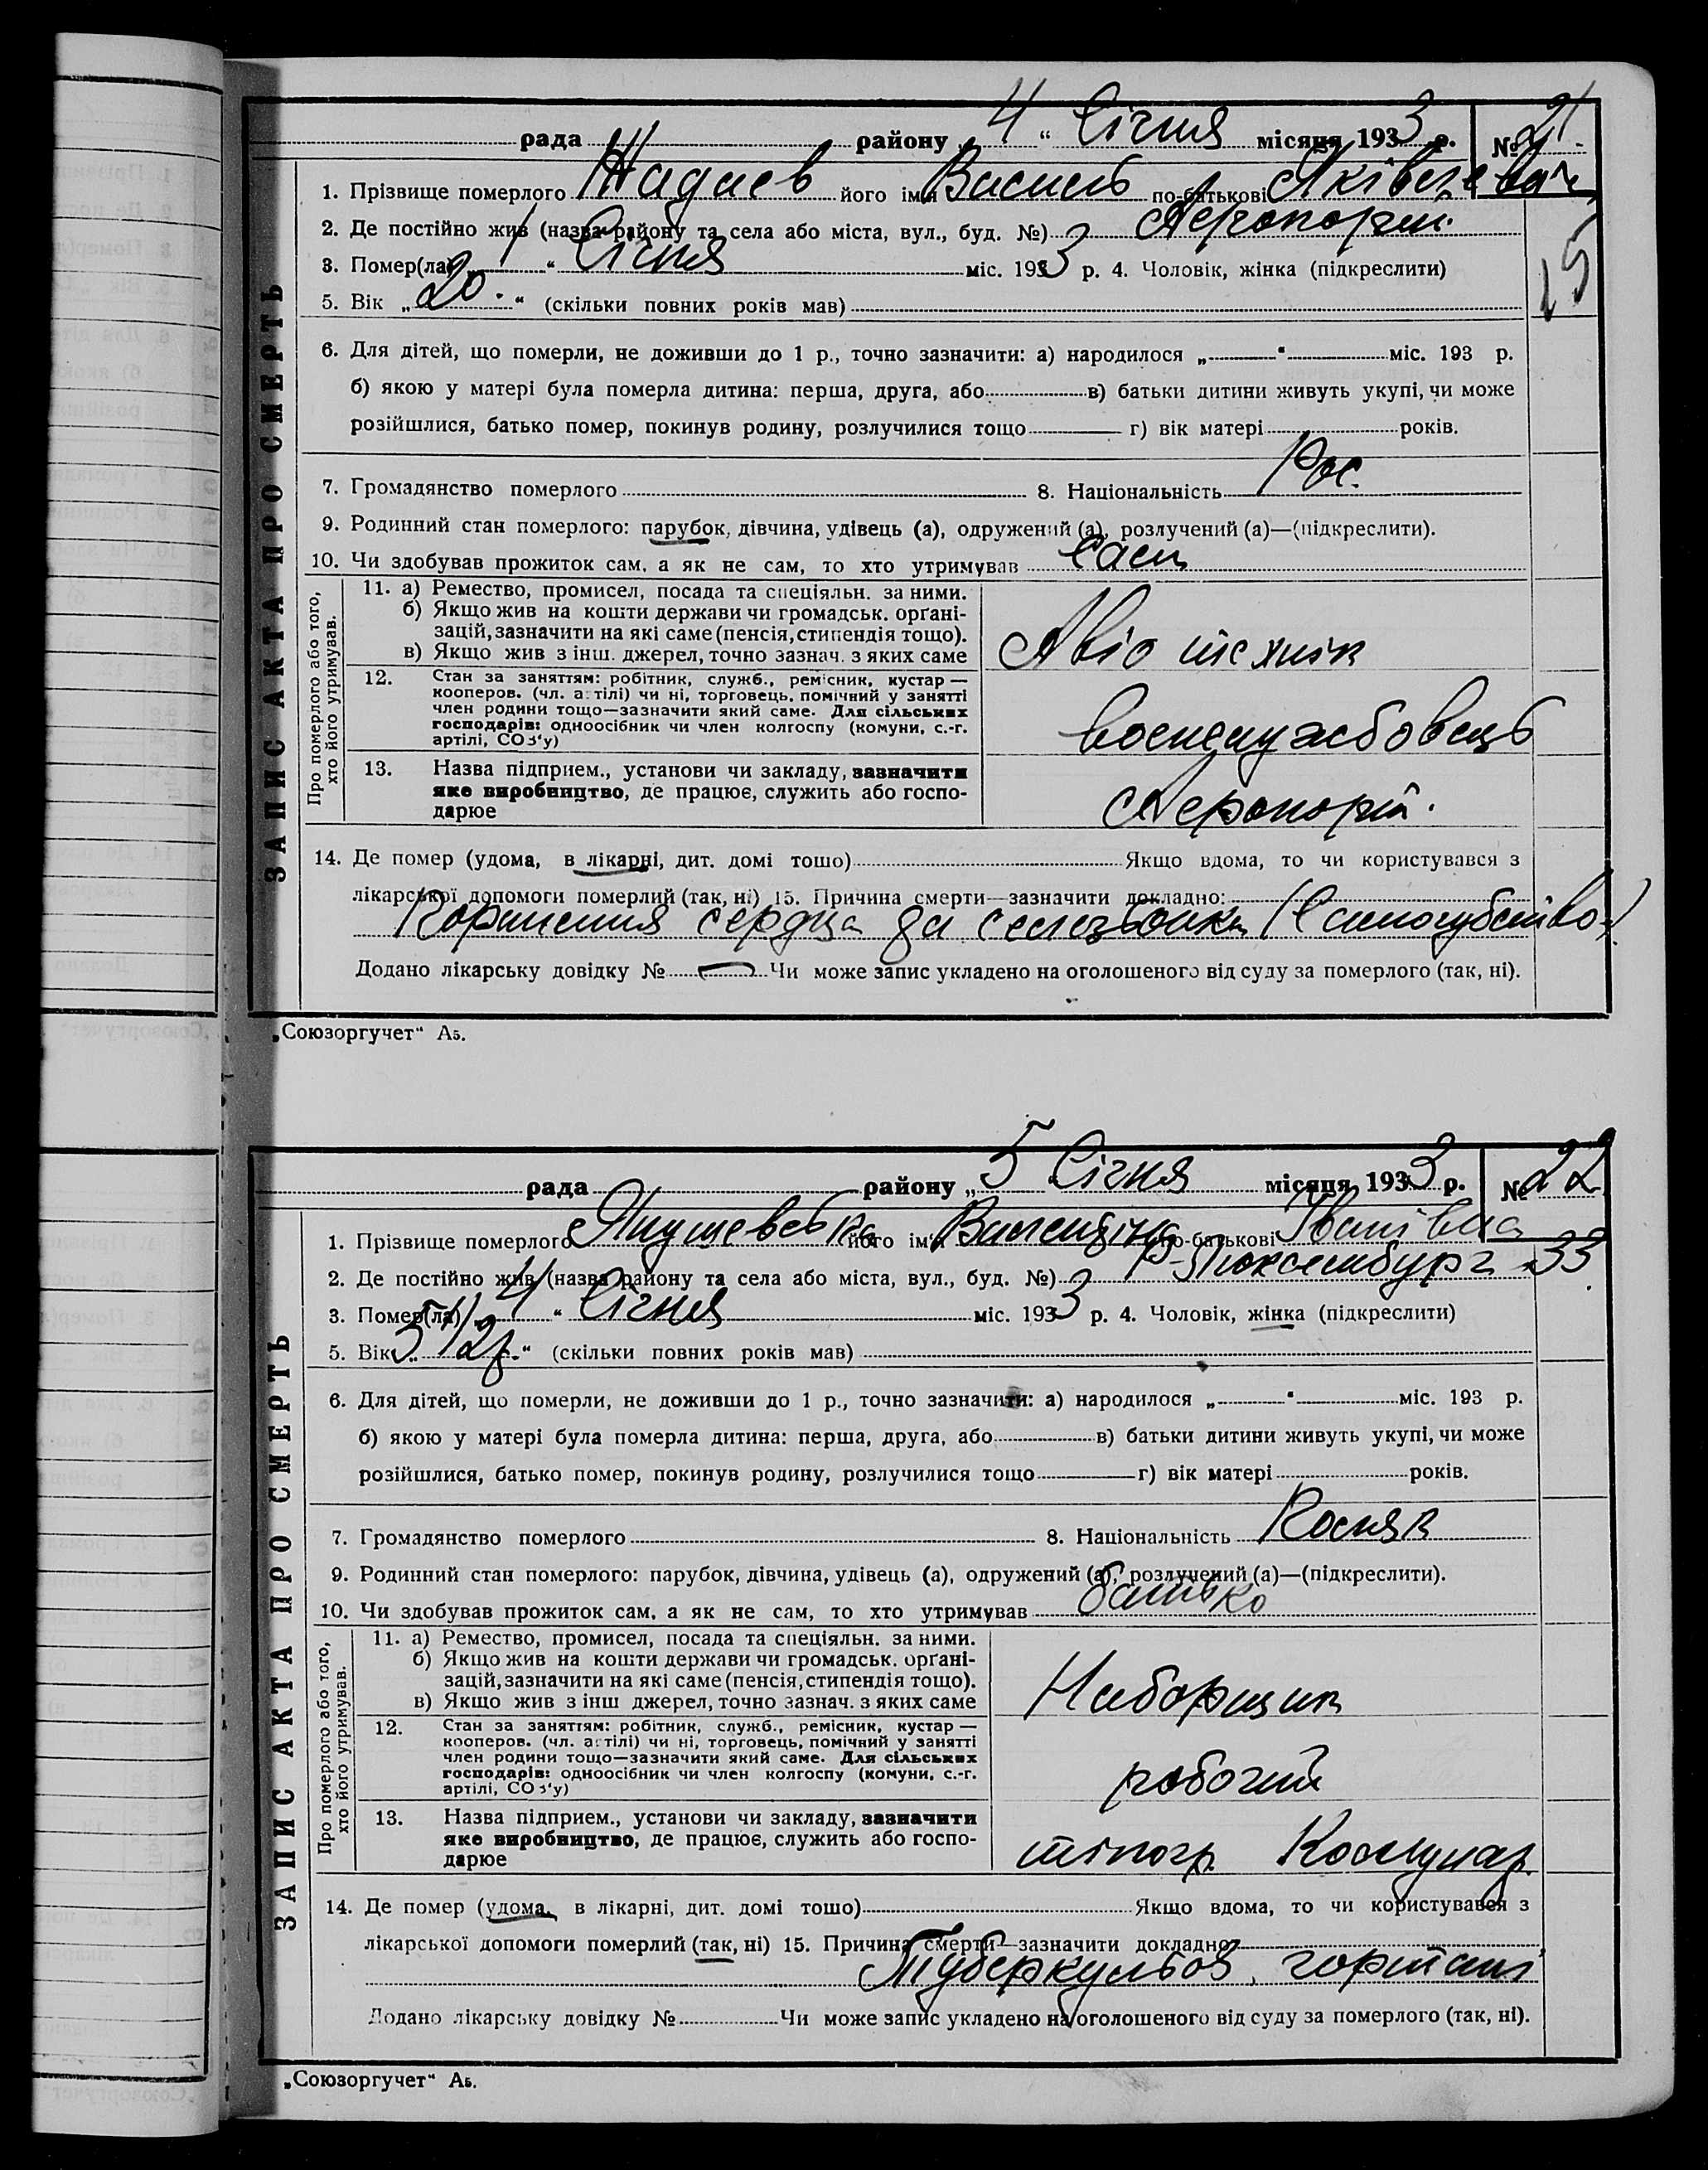 рада району „4“ Січня місяця 1933 р. № 21
1. Прізвище померлого Жадаев його ім'я Василь по-батькові
2. Де постійно жив (назва району та села або міста, вул., буд. №) Аеропорт.
3. Помер(ла) „1“ Січня міс. 1933 р. 4. Чоловік, жінка (підкреслити)
15
5. Вік „20.“ (скільки повних років мав)
6. Для дітей, що померли, не доживши до 1 р., точно зазначити: а) народилося „ “ міс. 193 р.
б) якою у матері була померла дитина: перша, друга, або в) батьки дитини живуть укупі, чи може
розійшлися, батько помер, покинув родину, розлучилися тощо г) вік матері років.
7. Громадянство померлого 8. Національність Рос.
9. Родинний стан померлого: парубок, дівчина, удівець (а), одружений (а), розлучений (а)—(підкреслити).
10. Чи здобував прожиток сам, а як не сам, то хто утримував сам
ЗАПИС АКТА ПРО СМЕРТЬ
Про померлого або того, хто його утримував.
11. а) Ремество, промисел, посада та спеціяльн. за ними.
б) Якщо жив на кошти держави чи громадськ. орґані-
зацій, зазначити на які саме (пенсія, стипендія тощо).
в) Якщо жив з інш. джерел, точно зазнач. з яких саме
Авіо технік
12. Стан за заняттям: робітник, служб., ремісник, кустар —
кооперов. (чл. артілі) чи ні, торговець, помічний у занятті
член родини тощо—зазначити який саме. Для сільських
господарів: одноосібник чи член колгоспу (комуни, с.-г.
артілі, СОЗ'у)
военслужбовець
13. Назва підприєм., установи чи закладу, зазначити
яке виробництво, де працює, служить або госпо-
дарює
Аеропорт.
14. Де помер (удома, в лікарні, дит. домі тощо) Якщо вдома, то чи користувався з
лікарської допомоги померлий (так, ні) 15. Причина смерти—зазначити докладно:
сердца да (Самогубство)
Додано лікарську довідку № — Чи може запис укладено на оголошеного від суду за померлого (так, ні).
„Союзоргучет“ А5.
рада району „5“ Січня місяця 1933 р. № 22
1. Прізвище померлого його ім'я Валентіна по-батькові Іванівна
2. Де постійно жив (назва району та села або міста, вул., буд. №) Р-Люксембург 33
3. Помер(ла) „4“ Січня міс. 1933 р. 4. Чоловік, жінка (підкреслити)
5. Вік „5 1/2 р.“ (скільки повних років мав)
6. Для дітей, що померли, не доживши до 1 р., точно зазначити: а) народилося „ “ міс. 193 р.
б) якою у матері була померла дитина: перша, друга, або в) батьки дитини живуть укупі, чи може
розійшлися, батько помер, покинув родину, розлучилися тощо г) вік матері років.
7. Громадянство померлого 8. Національність
9. Родинний стан померлого: парубок, дівчина, удівець (а), одружений (а), розлучений (а)—(підкреслити).
10. Чи здобував прожиток сам, а як не сам, то хто утримував батько
ЗАПИС АКТА ПРО СМЕРТЬ
Про померлого або того, хто його утримував.
11. а) Ремество, промисел, посада та спеціяльн. за ними.
б) Якщо жив на кошти держави чи громадськ. орґані-
зацій, зазначити на які саме (пенсія, стипендія тощо).
в) Якщо жив з інш джерел, точно зазнач. з яких саме
Наборщик
12. Стан за заняттям: робітник, служб., ремісник, кустар —
кооперов. (чл. артілі) чи ні, торговець, помічний у занятті
член родини тощо—зазначити який саме. Для сільських
господарів: одноосібник чи член колгоспу (комуни, с.-г.
артілі, СОЗ'у)
робочий
13. Назва підприєм., установи чи закладу, зазначити
яке виробництво, де працює, служить або госпо-
дарює
тіпогр. Комунар
14. Де помер (удома, в лікарні, дит. домі тощо) Якщо вдома, то чи користувався з
лікарської допомоги померлий (так, ні) 15. Причина смерти—зазначити докладно:
Туберкульоз гортані
Додано лікарську довідку № Чи може запис укладено на оголошеного від суду за померлого (так, ні).
„Союзоргучет“ А5.